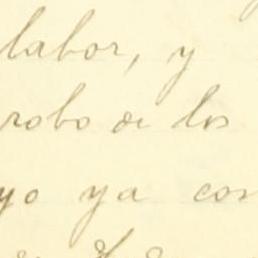 labor, y
robo de los
yo ya con